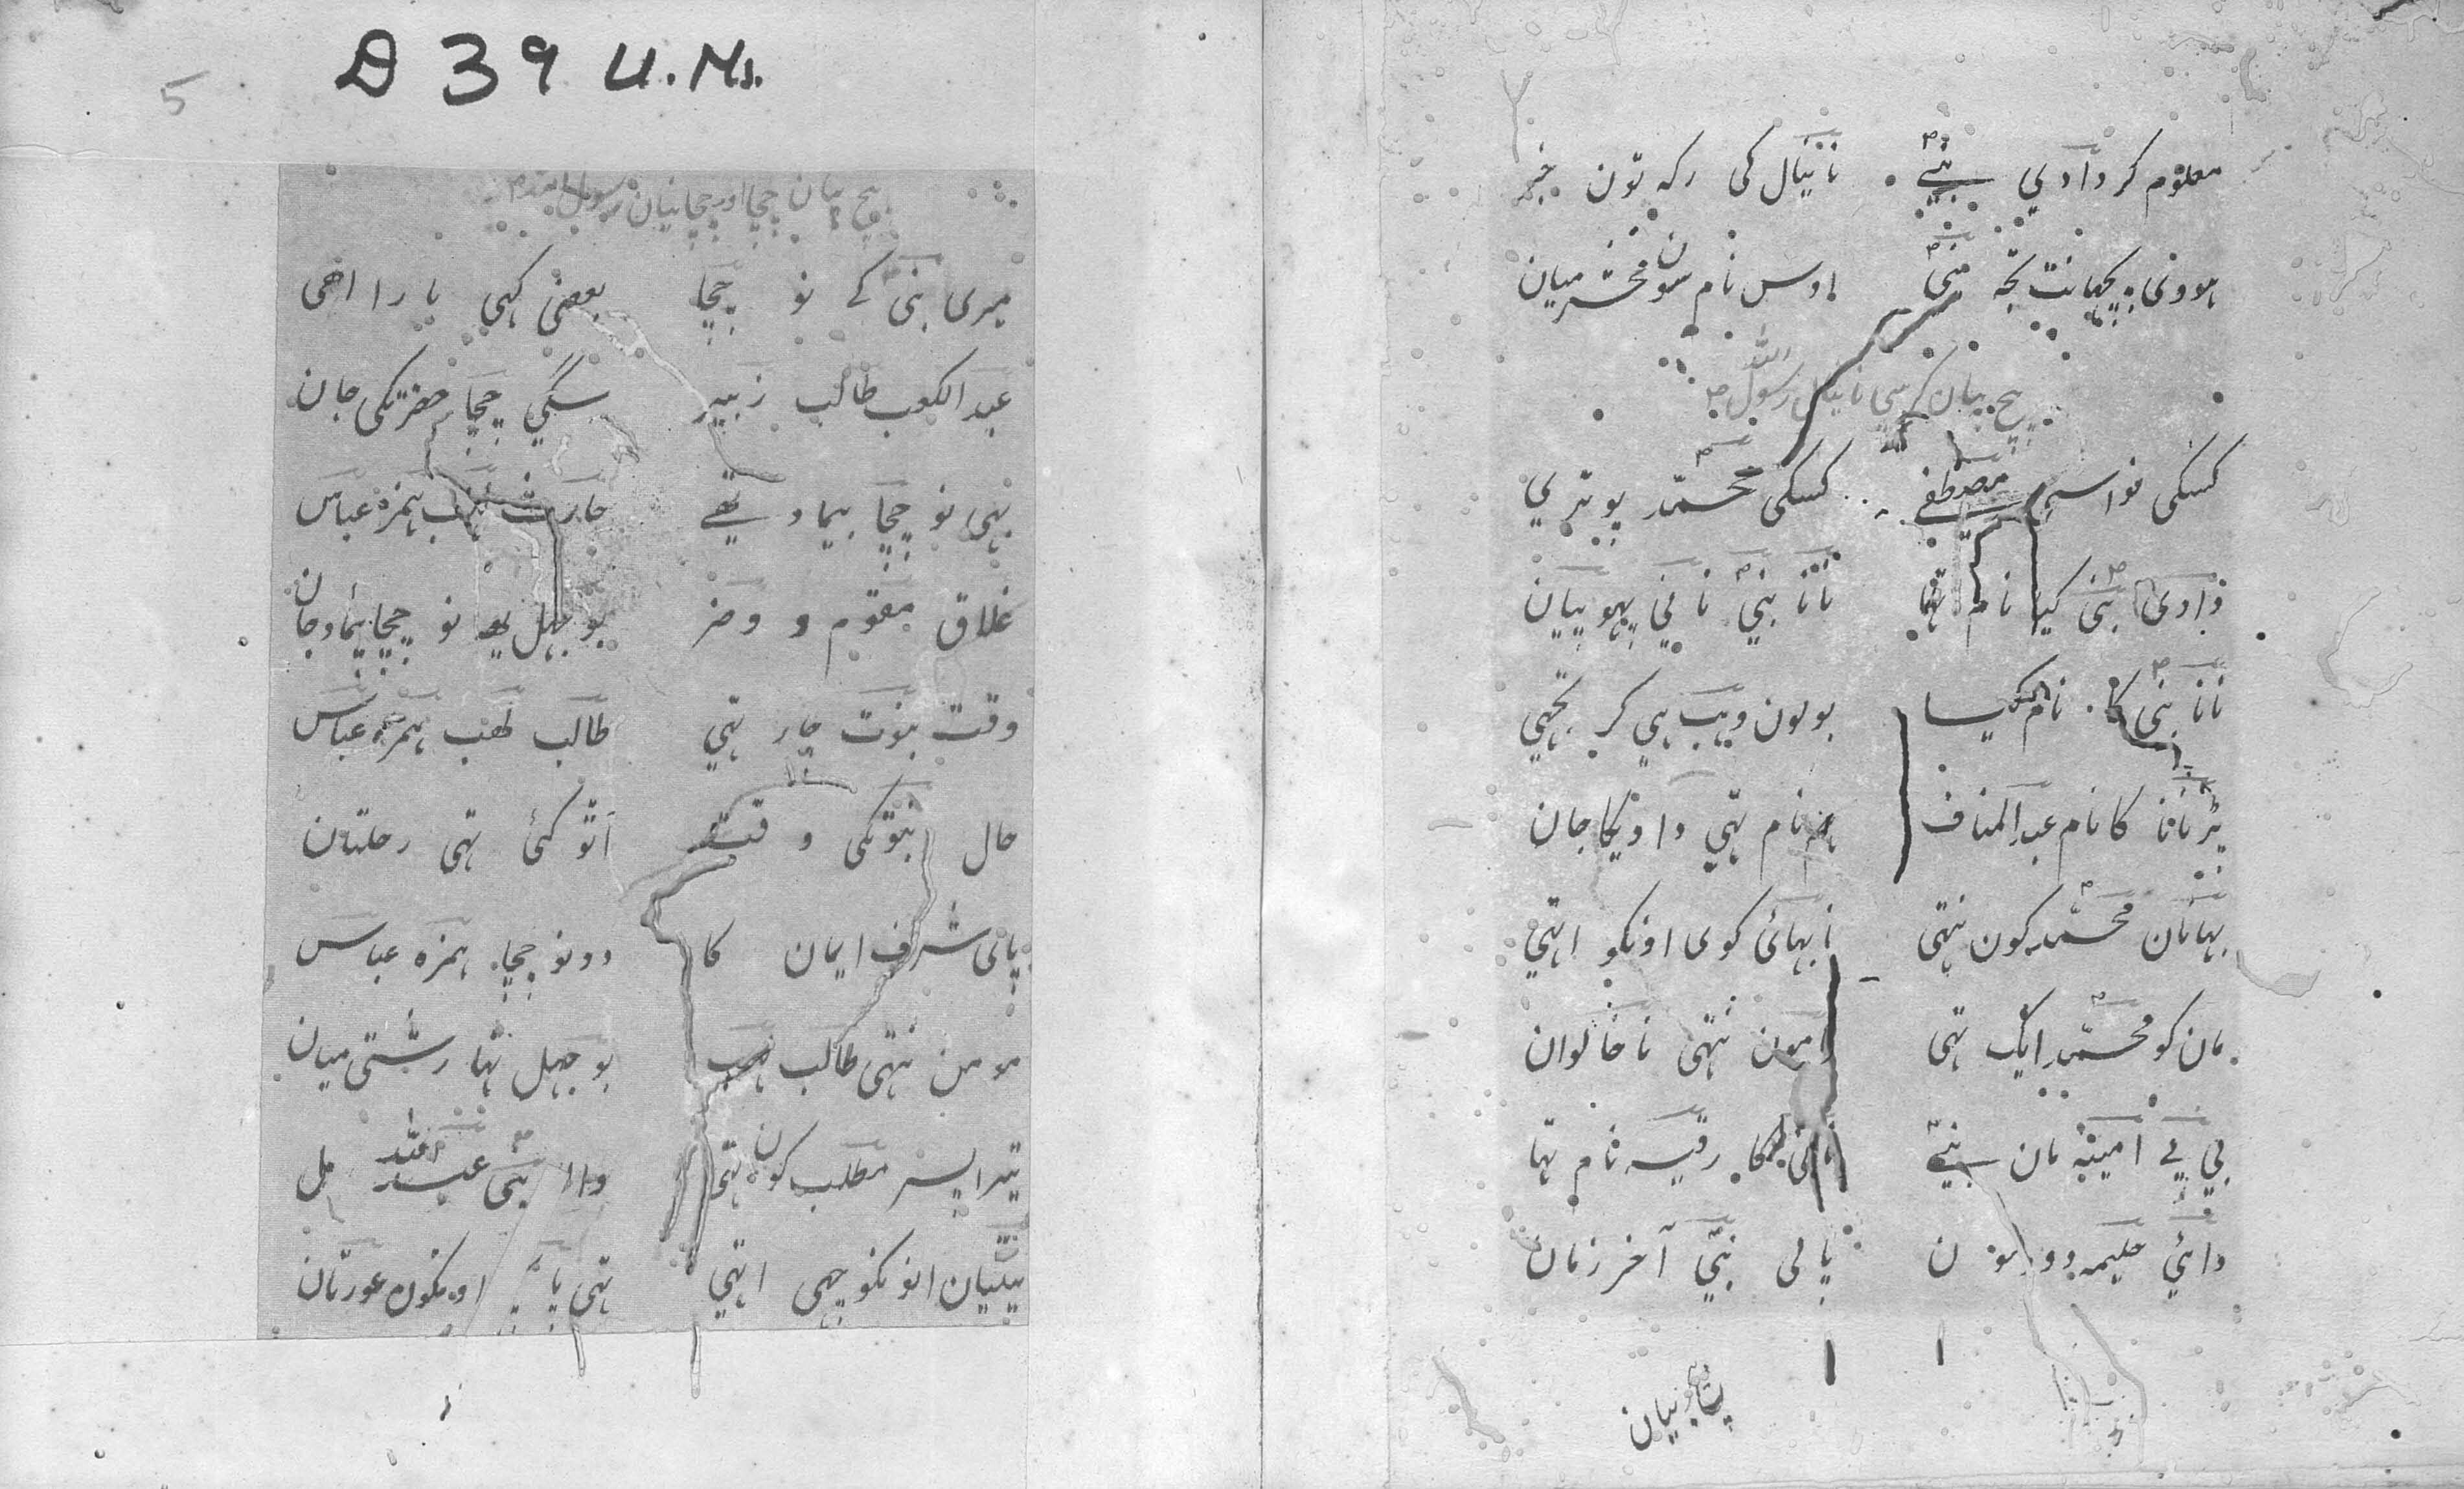 معلوم کر دادی نبیؐ نانیال کی رکہ تون خبر
ہوونی پچھانت تجہ منی اوس نام سون محشر میان
بیچ بیان کرسی نانیال رسول اللہ
کسکی نواسی مصطفی کسکی محمّد پوتری
دادی نبی کیا نام تھا نانا نبی نانی پھو بیان
نانا نبی کا نام کیا بولون وہب ہی کر تجھی
پڑنانا کا نام عبدالمناف نام تہی دادیکا جان
بہانان محمّد کون نتہی نا بہائی کوی اونکو اتہی
مان کو محمّد ایک تہی مامون نتہی نا خالوان
بی بی امینہ مان نبی نانی کا رقیہ نام تہا
دائی حلیمہ دود سون پالی نبی آخر زمان
D 39 U.Ms.
5
بیچ بیان چچا اور چچانیان رسول اللہ
میری نبی کے نو چچا بعضی کہی بارا اهی
عبدالکعب طالب زبیر سگی چچا حضرتکی جان
نہی نو چچا بیماد تھے حارث ہمزہ عباس
غلاق مقوم و وضر بوجہل یو نو چچا بیماد جان
وقت نبوت چار تہی طالب لهب ہمزہ عباس
حال نبوتکی وقت اتو کئی تہی رحلتان
پائی شرف ایمان کا دونو چچا ہمزہ عباس
مومن نتہی طالب لهب بوجہل تہا رشتی میان
تیرا پسر مطلب کون تہی والد نبی عبد اللہ مل
بیٹیان انونکو چهی اتہی تہی اونکون عورتان